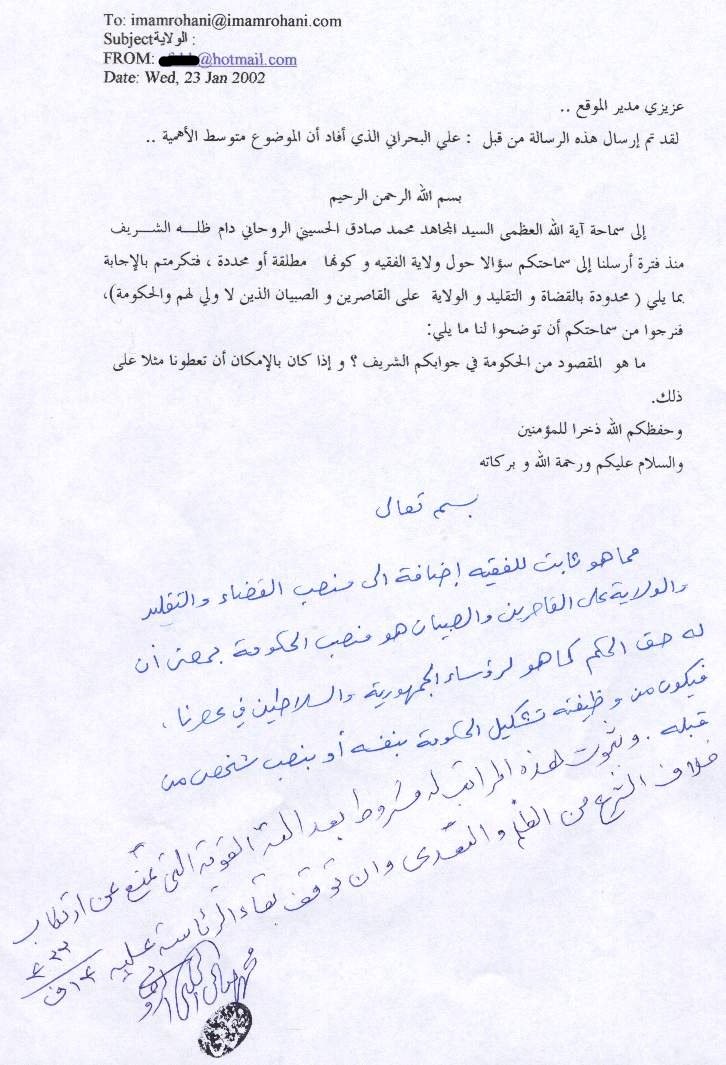 To: imamrohani@imamrohani.com
Subject الولاية :
FROM: @hotmail.com
Date: Wed, 23 Jan 2002
عزيزي مدير الموقع ..
لقد تم إرسال هذه الرسالة من قبل : علي البحراني الذي أفاد أن الموضوع متوسط الأهمية ..
بسم الله الرحمن الرحيم
إلى سماحة آية الله العظمى السيد المجاهد محمد صادق الحسيني الروحاني دام ظلــه الشــريف
منذ فترة أرسلنا إلى سماحتكم سؤالا حول ولاية الفقيه و كونها مطلقة أو محددة ، فتكرمتم بالإجابة
بما يلي ( محدودة بالقضاة و التقليد و الولاية على القاصرين و الصبيان الذين لا ولي لهم والحكومة)،
فنرجوا من سماحتكم أن توضحوا لنا ما يلي:
ما هو المقصود من الحكومة في جوابكم الشريف ؟ و إذا كان بالإمكان أن تعطونا مثلا على
ذلك.
وحفظكم الله ذخرا للمؤمنين
والسلام عليكم ورحمة الله و بركاته
بسم تعالى
مما هو ثابت للفقيه إضافة الى منصب القضاء والتقليد
والولاية على القاصرين والصبيان هو منصب الحكومة بمعنى أن
له حق الحكم كما هو لرؤساء الجمهورية والسلاطين في عصرنا ،
فيكون من وظيفته تشكيل الحكومة بنفسه أو بنصب شخص من
قبله . وثبوت هذه المراتب له مشروط بعدالته القوية التي تمنع عن ارتكاب
خلاف الشرع من الظلم والتعدى وان توقف بقاء الرئاسة عليه